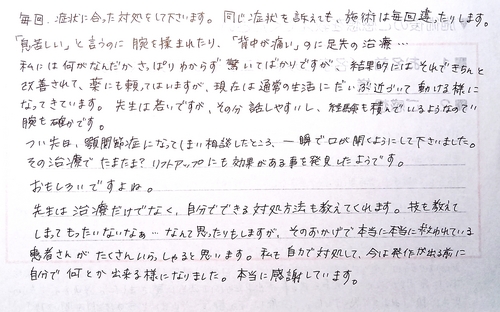 毎回、症状に合った対処をして下さいます。同じ症状を訴えても、施術は毎回違ったりします。
「息苦しい」と言うのに腕を揉まれたり、「背中が痛い」のに足先の治療…
私には何がなんだかさっぱりわからず驚いてばかりですが、結果的にはそれできちんと
改善されて、薬にも頼ってはいますが、現在は通常の生活にだいぶ近づいて動ける様に
なってきています。先生は若いですが、その分話しやすいし、経験も積んでいるようなので
腕も確かです。
つい先日、顎関節症になってしまい相談したところ、一瞬で口が開くようにして下さいました。
その治療でたまたま？リフトアップにも効果がある事を発見したようです。
おもしろいですよね。
先生は治療だけでなく、自分でできる対処方法も教えてくれます。技を教えて
しまってもったいないなぁ…なんて思ったりもしますが、そのおかげで本当に本当に救われている
患者さんがたくさんいらっしゃると思います。私も自力で対処して、今は発作が出る前に
自分で何とか出来る様になりました。本当に感謝しています。